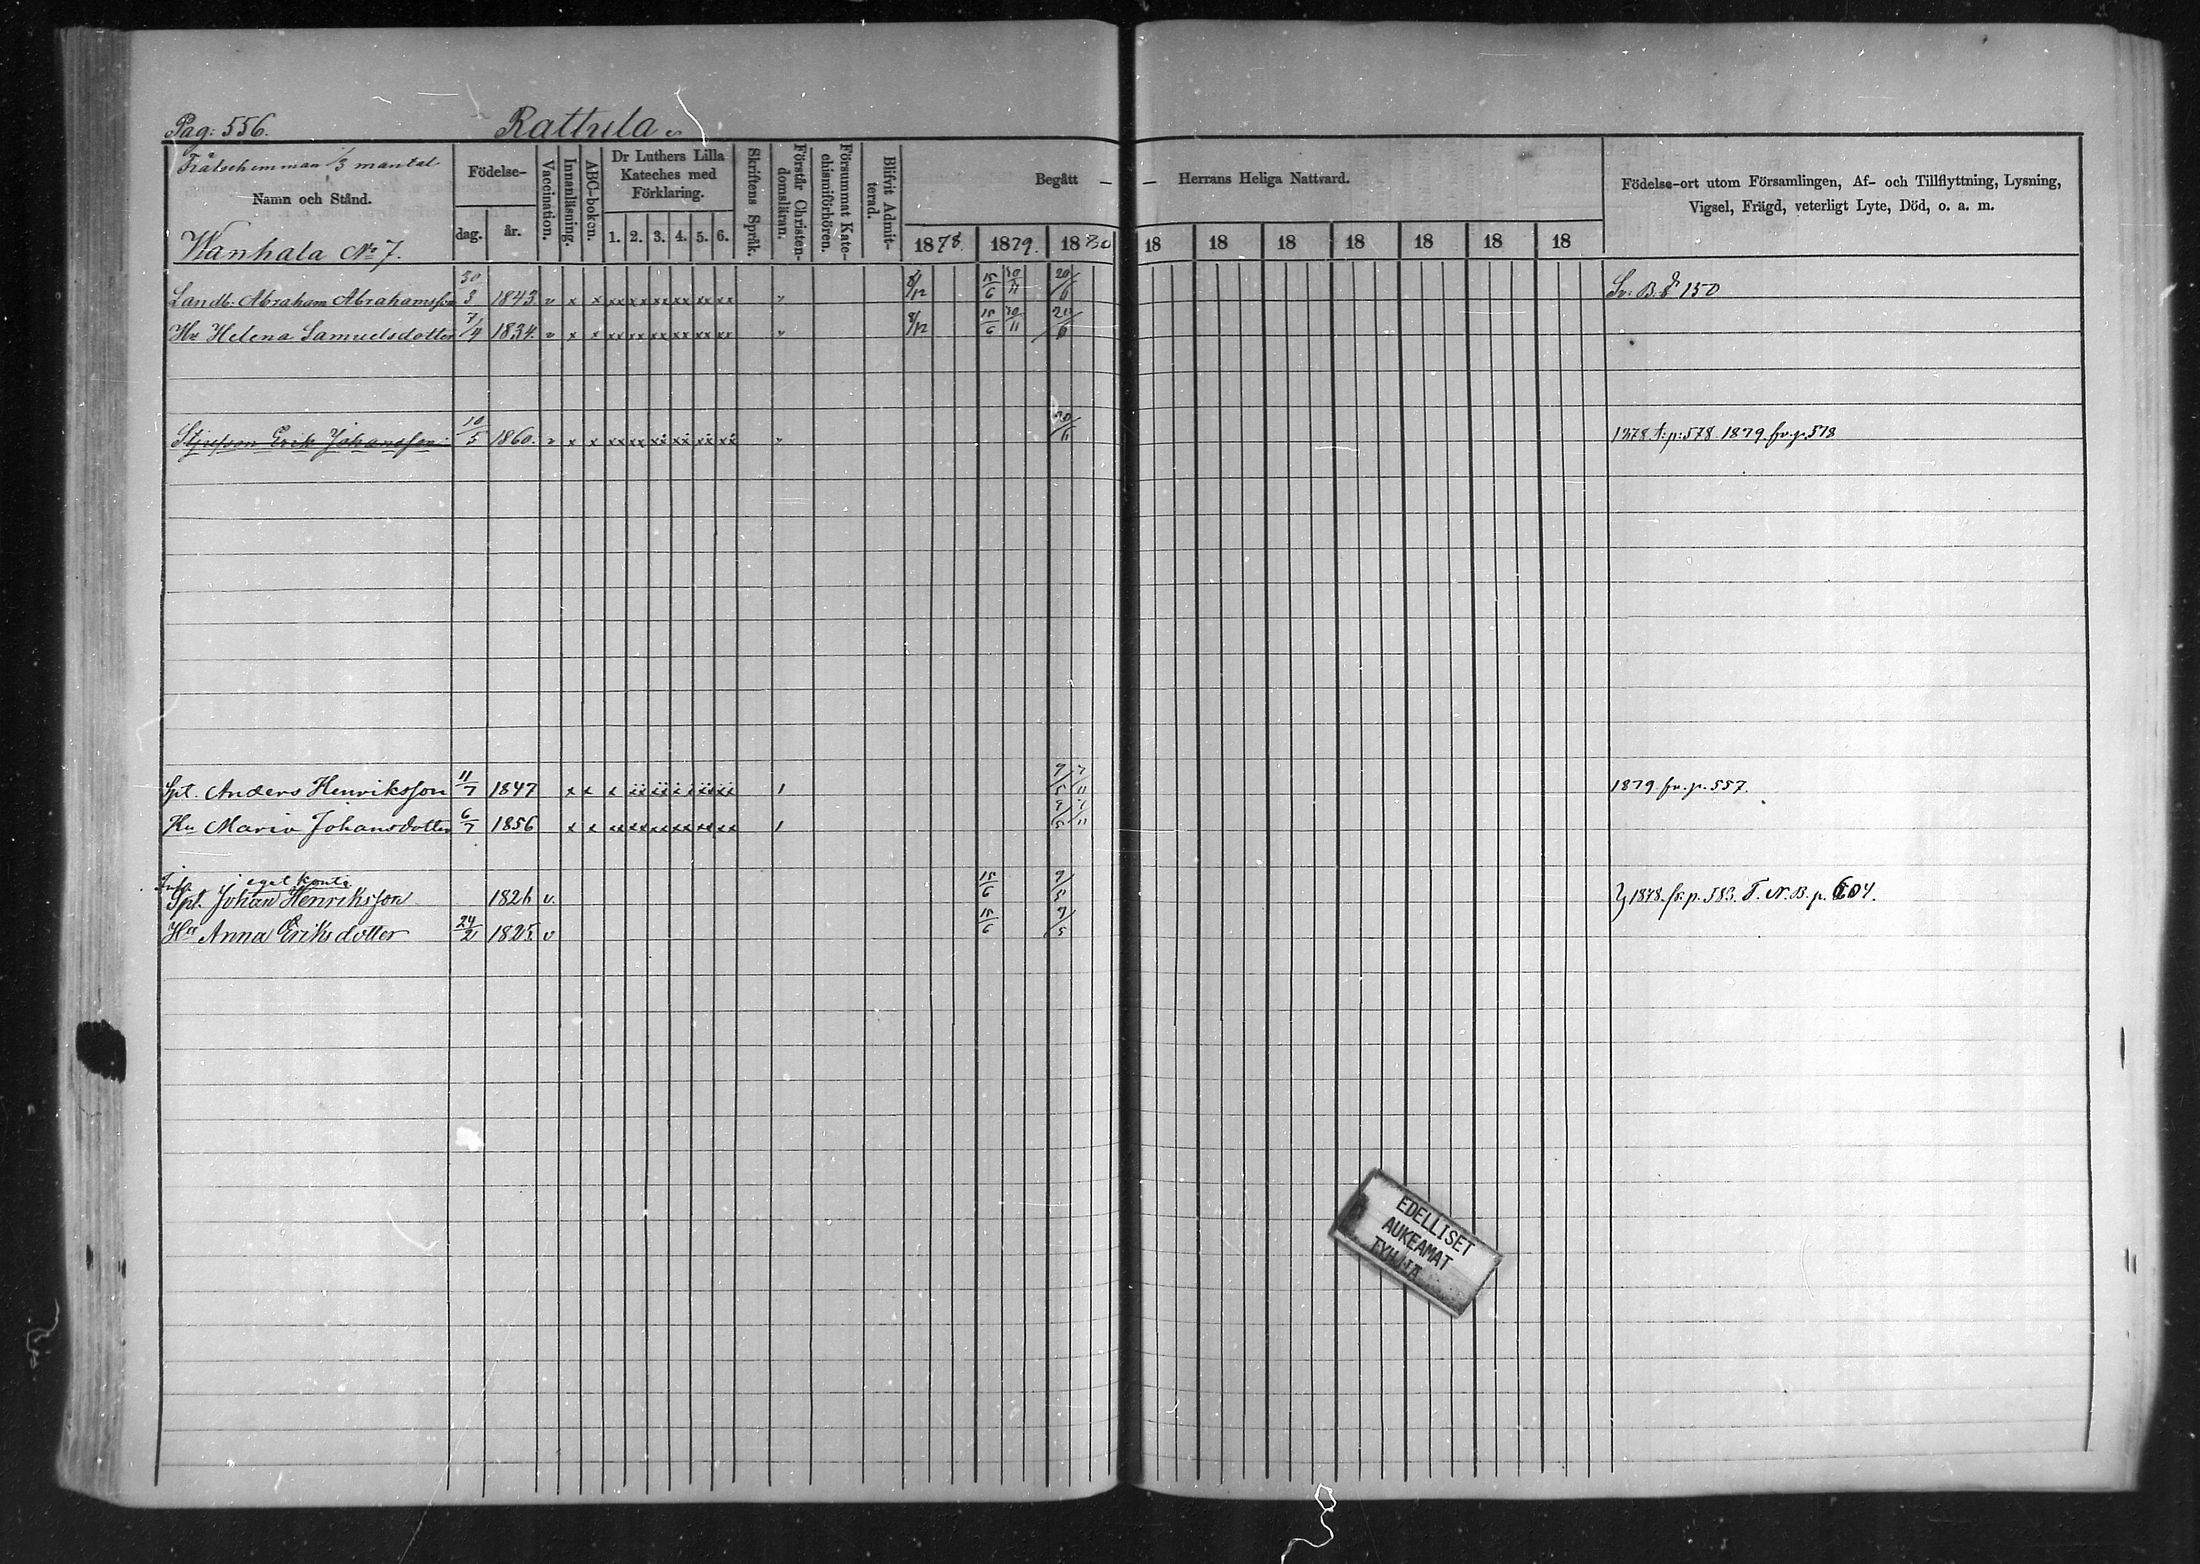 Pag: 556. Rattula
Frälsehemman 1/3 mantal
Namn och Stånd.
Wanhala No 7.
Födelse-
dag. år.
Vaccination.
Innanläsning.
ABC-boken.
Dr Luthers Lilla
Kateches med
Förklaring.
1. 2. 3. 4. 5. 6.
Skriftens Språk.
Förstår Christen-
domsläran.
Försummat Kate-
chismiförhören.
Blifvit Admit-
terad.
Begått — — Herrans Heliga Nattvard.
1878. 1879. 1880 18 18 18 18 18 18 18
Födelse-ort utom Församlingen, Af- och Tillflyttning, Lysning,
Vigsel, Frägd, veterligt Lyte, Död, o. a. m.
Landb: Abraham Abrahamsson 30/3 1843 v x x xx xx xx xx xx xx v 8/12 15/6 30/11 20/6 Sv. B. 150
Hu Helena Samuelsdotter 7/4 1834. v x x xx xx xx xx xx xx v 8/12 15/6 30/11 20/6
Styfson Erik Johansson 10/5 1860. v x x xx xx xx xx xx xx v 20/6 1878 t. p: 578 1879 fr. p. 578
Spt. Anders Henriksson 11/7 1847 x x x xx xx x x xx xx 1 9/5 7/11 1879. fr. p. 557.
Hu Maria Johansdotter 6/7 1856 x x xx xx xx xx xx xx 1 9/5 7/11
eget konto
Spt. Johan Henriksson 1826 v. 15/6 9/5 1878 fr. p. 583. T. N. B. p. 604.
Hu Anna Eriksdotter 24/2 1825 v 15/6 9/5
EDELLISET
AUKEAMAT
TYHJIÄ